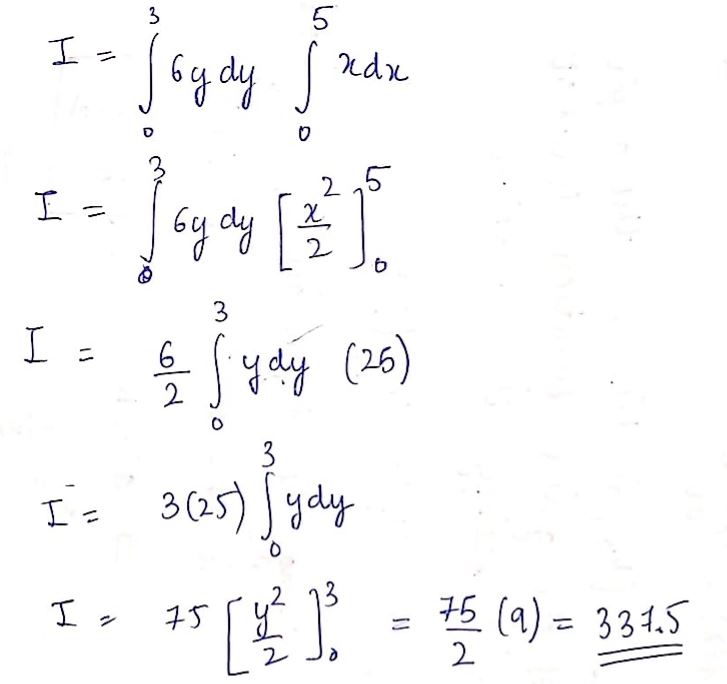 I = ∫₀³ 6y dy ∫₀⁵ x dx
I = ∫₀³ 6y dy [x²/2]₀⁵
I = 6/2 ∫₀³ y dy (25)
I = 3(25) ∫₀³ y dy
I = 75 [y²/2]₀³ = 75/2 (9) = 337.5